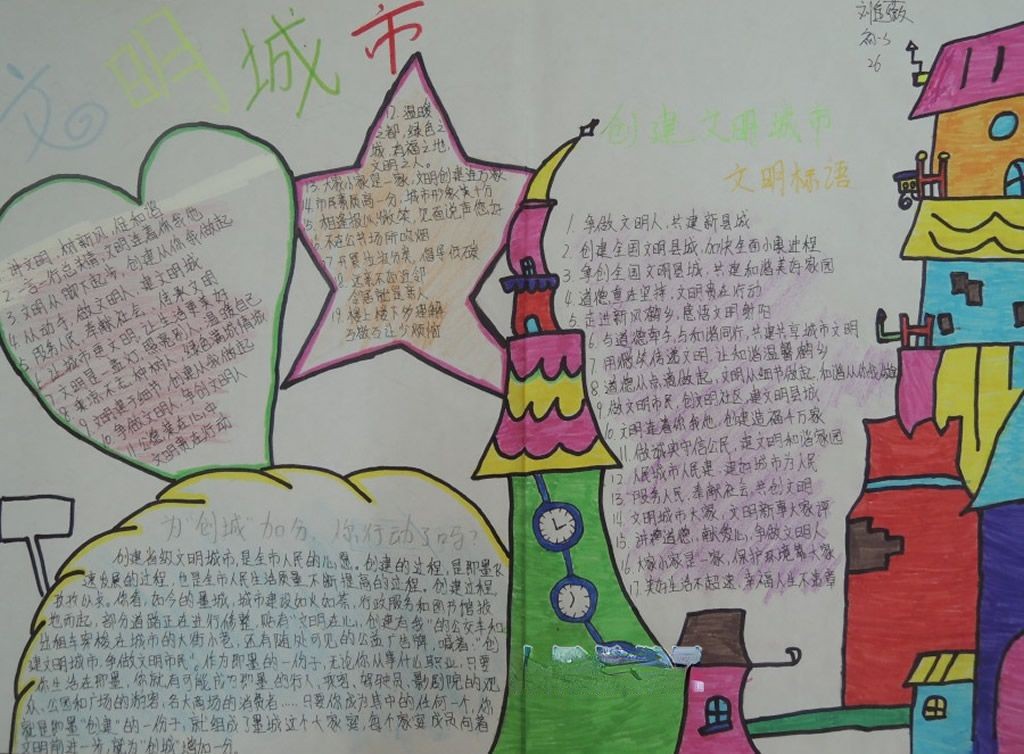 文明城市
刘
26
讲文明，树新风，促和谐
2.言一行总关情，文明连着你我他
3.文明从脚下起步，创建从你我做起
4.从动手，做文明人，建文明城
5.服务人民，奉献社会，传承文明
6.让城市更文明，让生活更美好
7.文明是一盏灯，照亮别人，温暖自己
8.来京不忘种树人，绿色满城情满城
9.文明建于细节，创建从我做起
10.争做文明人，争创文明人
11.公德美在心中
文明贵在行动
12.温暖
之都，绿色之
城，有福之地，
文明之人。
13.大家小家是一家，文明创建进万家
14.市民素质高一分，城市形象美十分
15.相逢报以微笑，见面说声您好
16.不在公共场所吸烟
17.开展垃圾分类，倡导低碳
18.远亲不如近邻
邻居就是亲人
19.楼上楼下多理解
互敬互让少烦恼
创建文明城市
文明标语
1.争做文明人，共建新县城
2.创建全国文明县城，加快全面小康进程
3.争创全国文明县城，共建和谐美好家园
4.道德重在坚持，文明贵在行动
5.走进新风鹤乡，感悟文明射阳
6.与道德牵手，与和谐同行，共建共享城市文明
7.用微笑传递文明，让和谐温馨鹤乡
8.道德从点滴做起，文明从细节做起，和谐从你我做起
9.做文明市民，创文明社区，建文明县城
10.文明连着你我他，创建造福千万家
11.做诚实守信公民，建文明和谐家园
12.人民城市人民建，建好城市为人民
13.服务人民，奉献社会，共创文明
14.文明城市大家，文明新事大家评
15.讲道德，献爱心，争做文明人
16.大家小家是一家，保护环境靠大家
17.美好生活不超速，幸福人生不出章
为“创城”加分，你行动了吗？
创建省级文明城市，是全市人民的心愿。创建的过程，是即墨飞
速发展的过程，也是全市人民生活质量不断提高的过程。创建过程，
我行众。你看，如今的墨城，城市建设如火如荼，行政服务和图书馆拔
地而起，部分道路正在进行修整，贴有“文明在心，创建有我”的公交车和
出租车穿梭在城市的大街小巷，还有随处可见的公益广告牌，喊着：“创
建文明城市，争做文明市民”。作为即墨的一份子，无论你从事什么职业，只要
你生活在即墨，你就有可能成为即墨的行人、乘客、驾驶员、影剧院的观
众、公园和广场的游客、各大商场的消费者……只要你成为其中的任何一个，你
就是即墨“创建”的一份子，就组成了墨城这个大家庭，每个家庭成员向着
文明前进一步，就为“创城”增加一分。